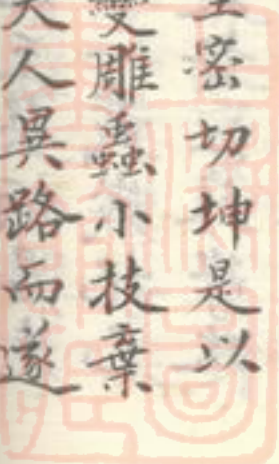 密切坤是以
雕蟲小技棄
人異路而遂